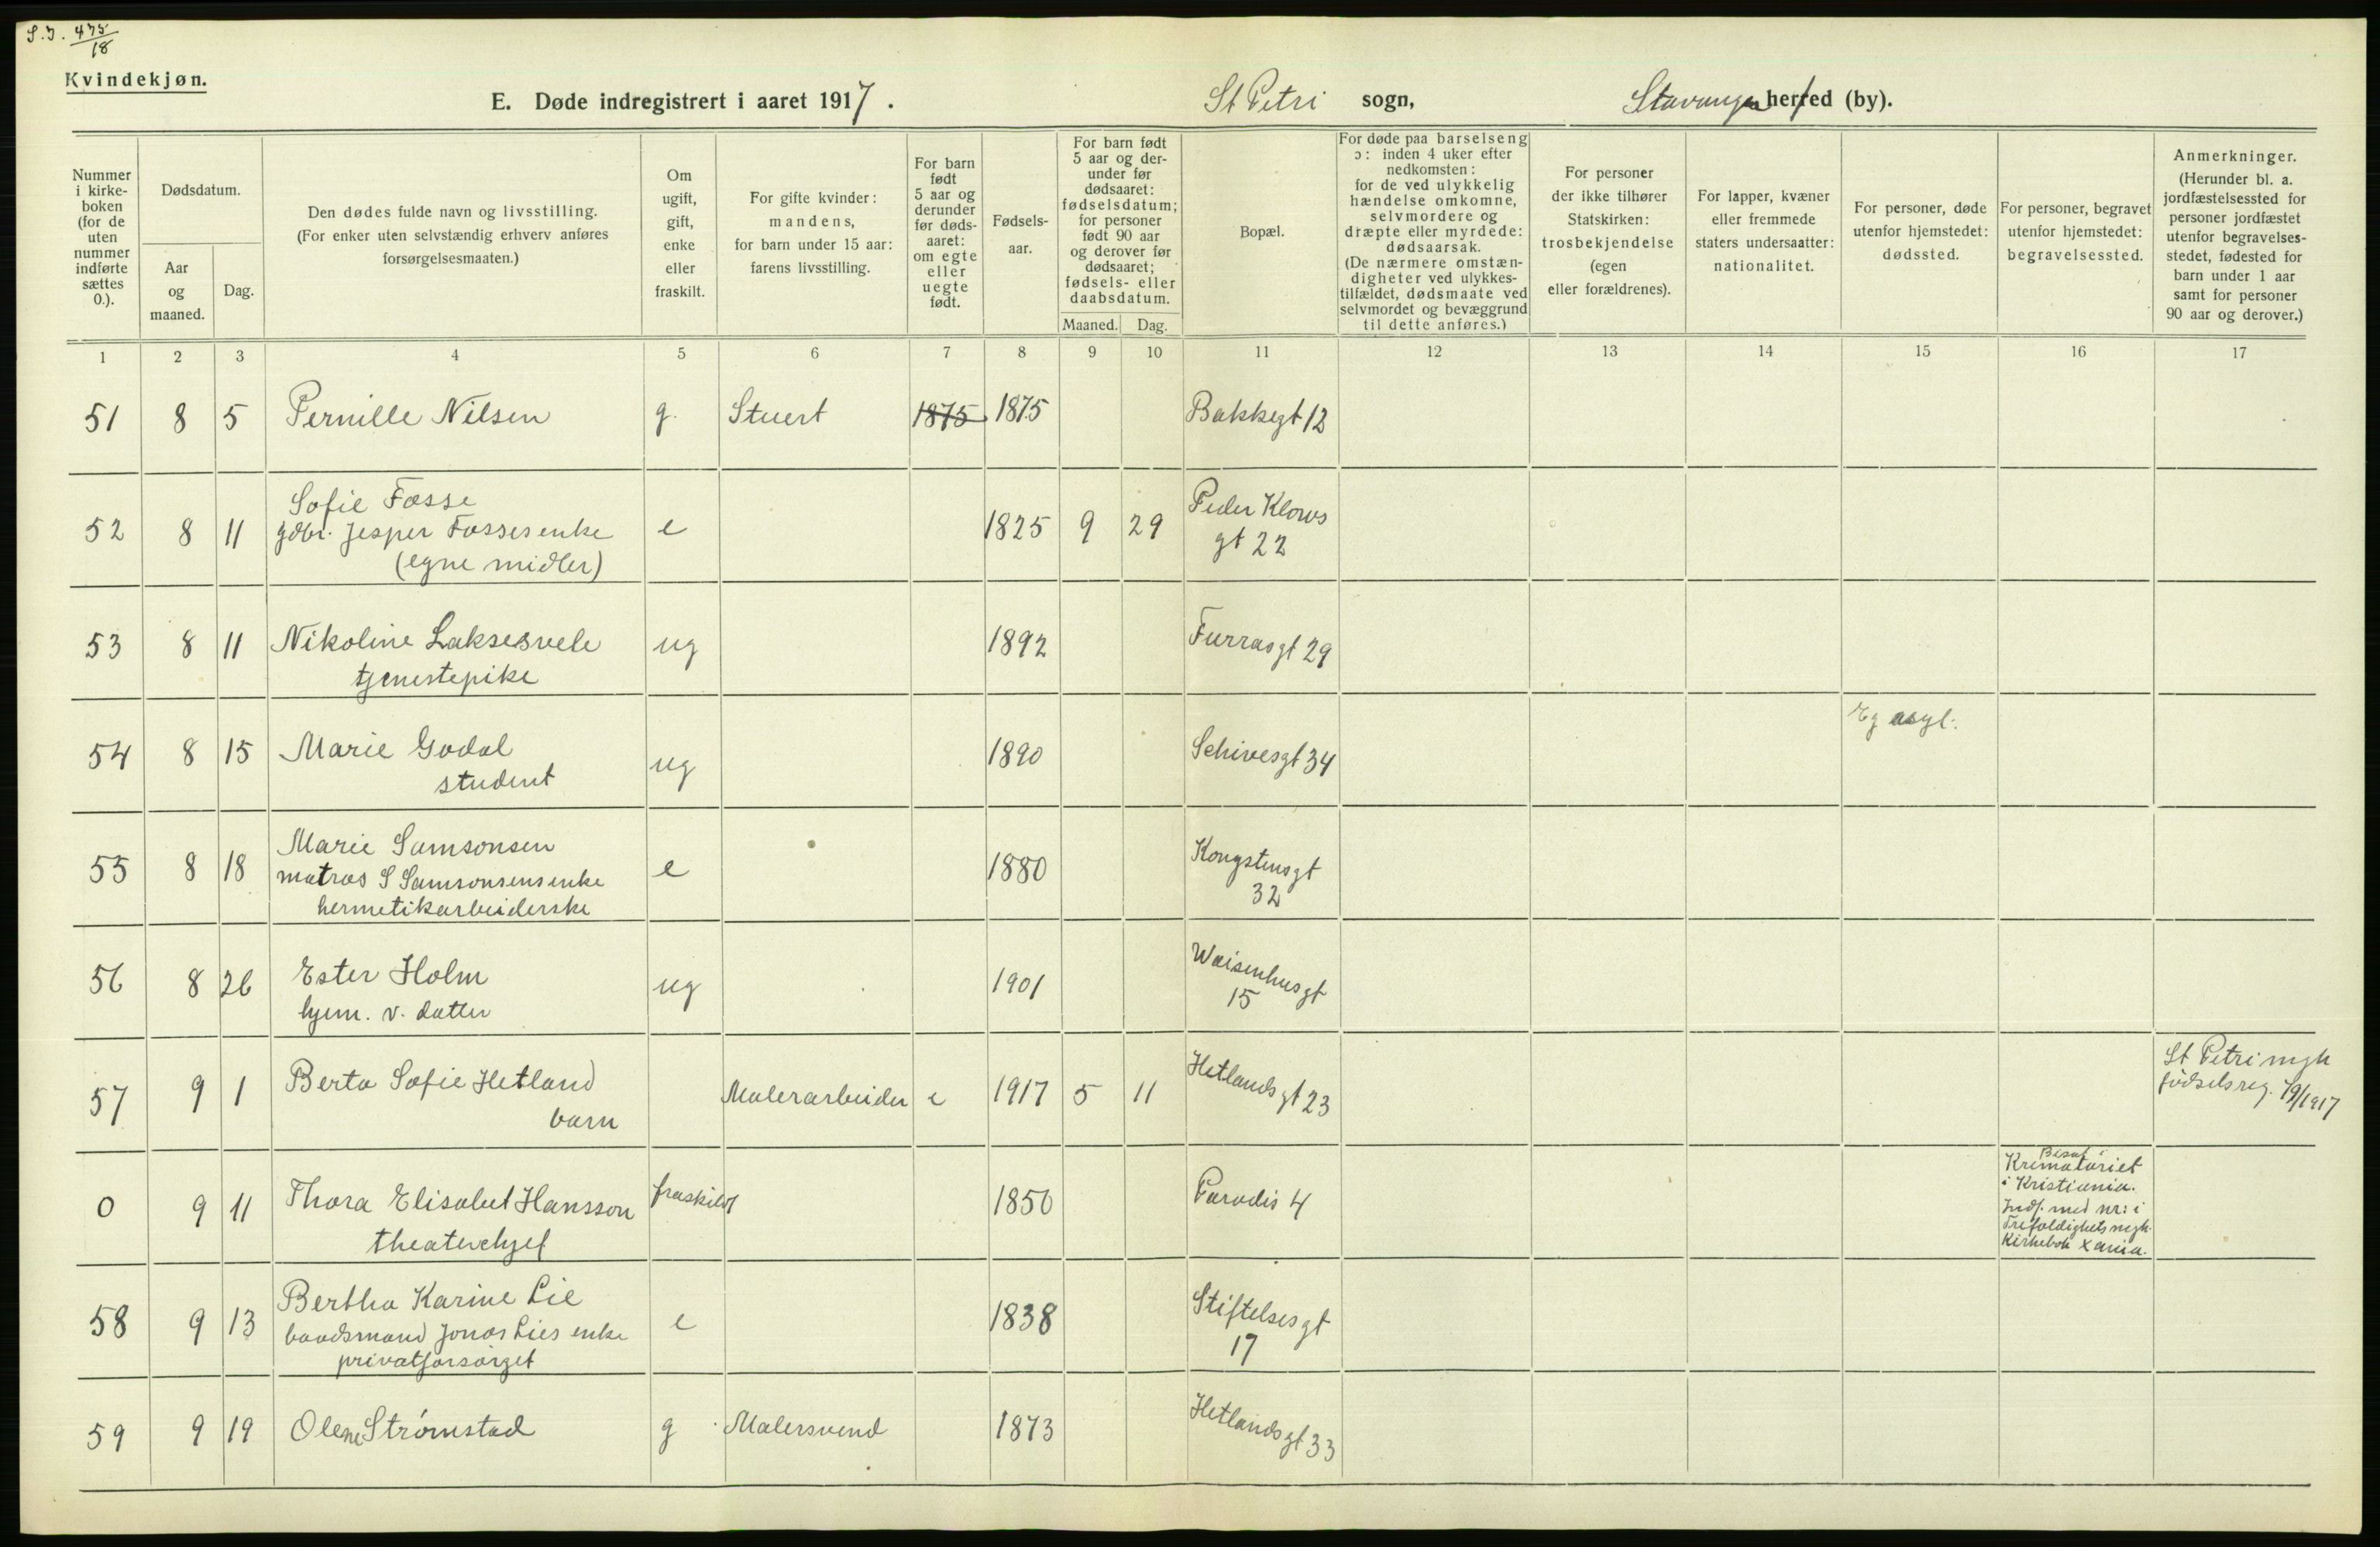 S.J. 475/18
Kvindekjøn.
E. Døde indregistrert i aaret 1917. St Petri sogn, Stavanger herred (by).
Nummer i kirke-boken (for de uten nummer indførte sættes 0.).
Dødsdatum.
Aar og maaned.
Dag.
Den dødes fulde navn og livsstilling.
(For enker uten selvstændig erhverv anføres
forsørgelsesmaaten.)
Om ugift, gift, enke eller fraskilt.
For gifte kvinder:
mandens,
for barn under 15 aar:
farens livsstilling.
For barn født 5 aar og derunder før døds-aaret: om egte eller uegte født.
Fødsels-aar.
For barn født 5 aar og der-under før dødsaaret: fødselsdatum; for personer født 90 aar og derover før dødsaaret; fødsels- eller daabsdatum.
Maaned. Dag.
Bopæl.
For døde paa barselseng
ɔ: inden 4 uker efter
nedkomsten:
for de ved ulykkelig
hændelse omkomne,
selvmordere og
dræpte eller myrdede:
dødsaarsak.
(De nærmere omstæn-
digheter ved ulykkes-
tilfældet, dødsmaate ved
selvmordet og bevæggrund
til dette anføres.)
For personer
der ikke tilhører
Statskirken:
trosbekjendelse
(egen
eller forældrenes).
For lapper, kvæner
eller fremmede
staters undersaatter:
nationalitet.
For personer, døde
utenfor hjemstedet:
dødssted.
For personer, begravet
utenfor hjemstedet:
begravelsessted.
Anmerkninger.
(Herunder bl. a.
jordfæstelsessted for
personer jordfæstet
utenfor begravelses-
stedet, fødested for
barn under 1 aar
samt for personer
90 aar og derover.)
1 2 3 4 5 6 7 8 9 10 11 12 13 14 15 16 17
51 8 5 Pernille Nilsen g. Stuert 1875 1875 Bakkegt 12
52 8 11 Sofie Fosse
gdbr. Jesper Fosses enke
(egne midler)
e 1825 9 29 Peder Klows
gt 22
53 8 11 Nikoline Laksesvele
tjenestepike
ug 1892 Furrasgt 29
54 8 15 Marie Godal
student
ug 1890 Schivesgt 34 Eg asyl.
55 8 18 Marie Samsonsen
matros S Samsonsens enke
hermetikarbeiderske
e 1880 Kongstensgt
32
56 8 26 Ester Holm
hjem. v. datter
ug 1901 Waisenhusgt
15
57 9 1 Berta Sofie Hetland
barn
Malerarbeider e 1917 5 11 Hetlandsgt 23
St Petri mgh
fødselsreg. 79/1917
0 9 11 Thora Elisabet Hansson
theaterchef
fraskildt 1850 Paradis 4
Bisat i
Krematoriet
i Kristiania.
Indf. med nr: i
Trefoldighets mgh.
Kirkebok Xania.
58 9 13 Bertha Karine Lie
baadsmand Jonas Lies enke
privatforsørget
e 1838 Stiftelsesgt
17
59 9 19 Olene Strømstad g Malersvend 1873 Hetlandsgt 33